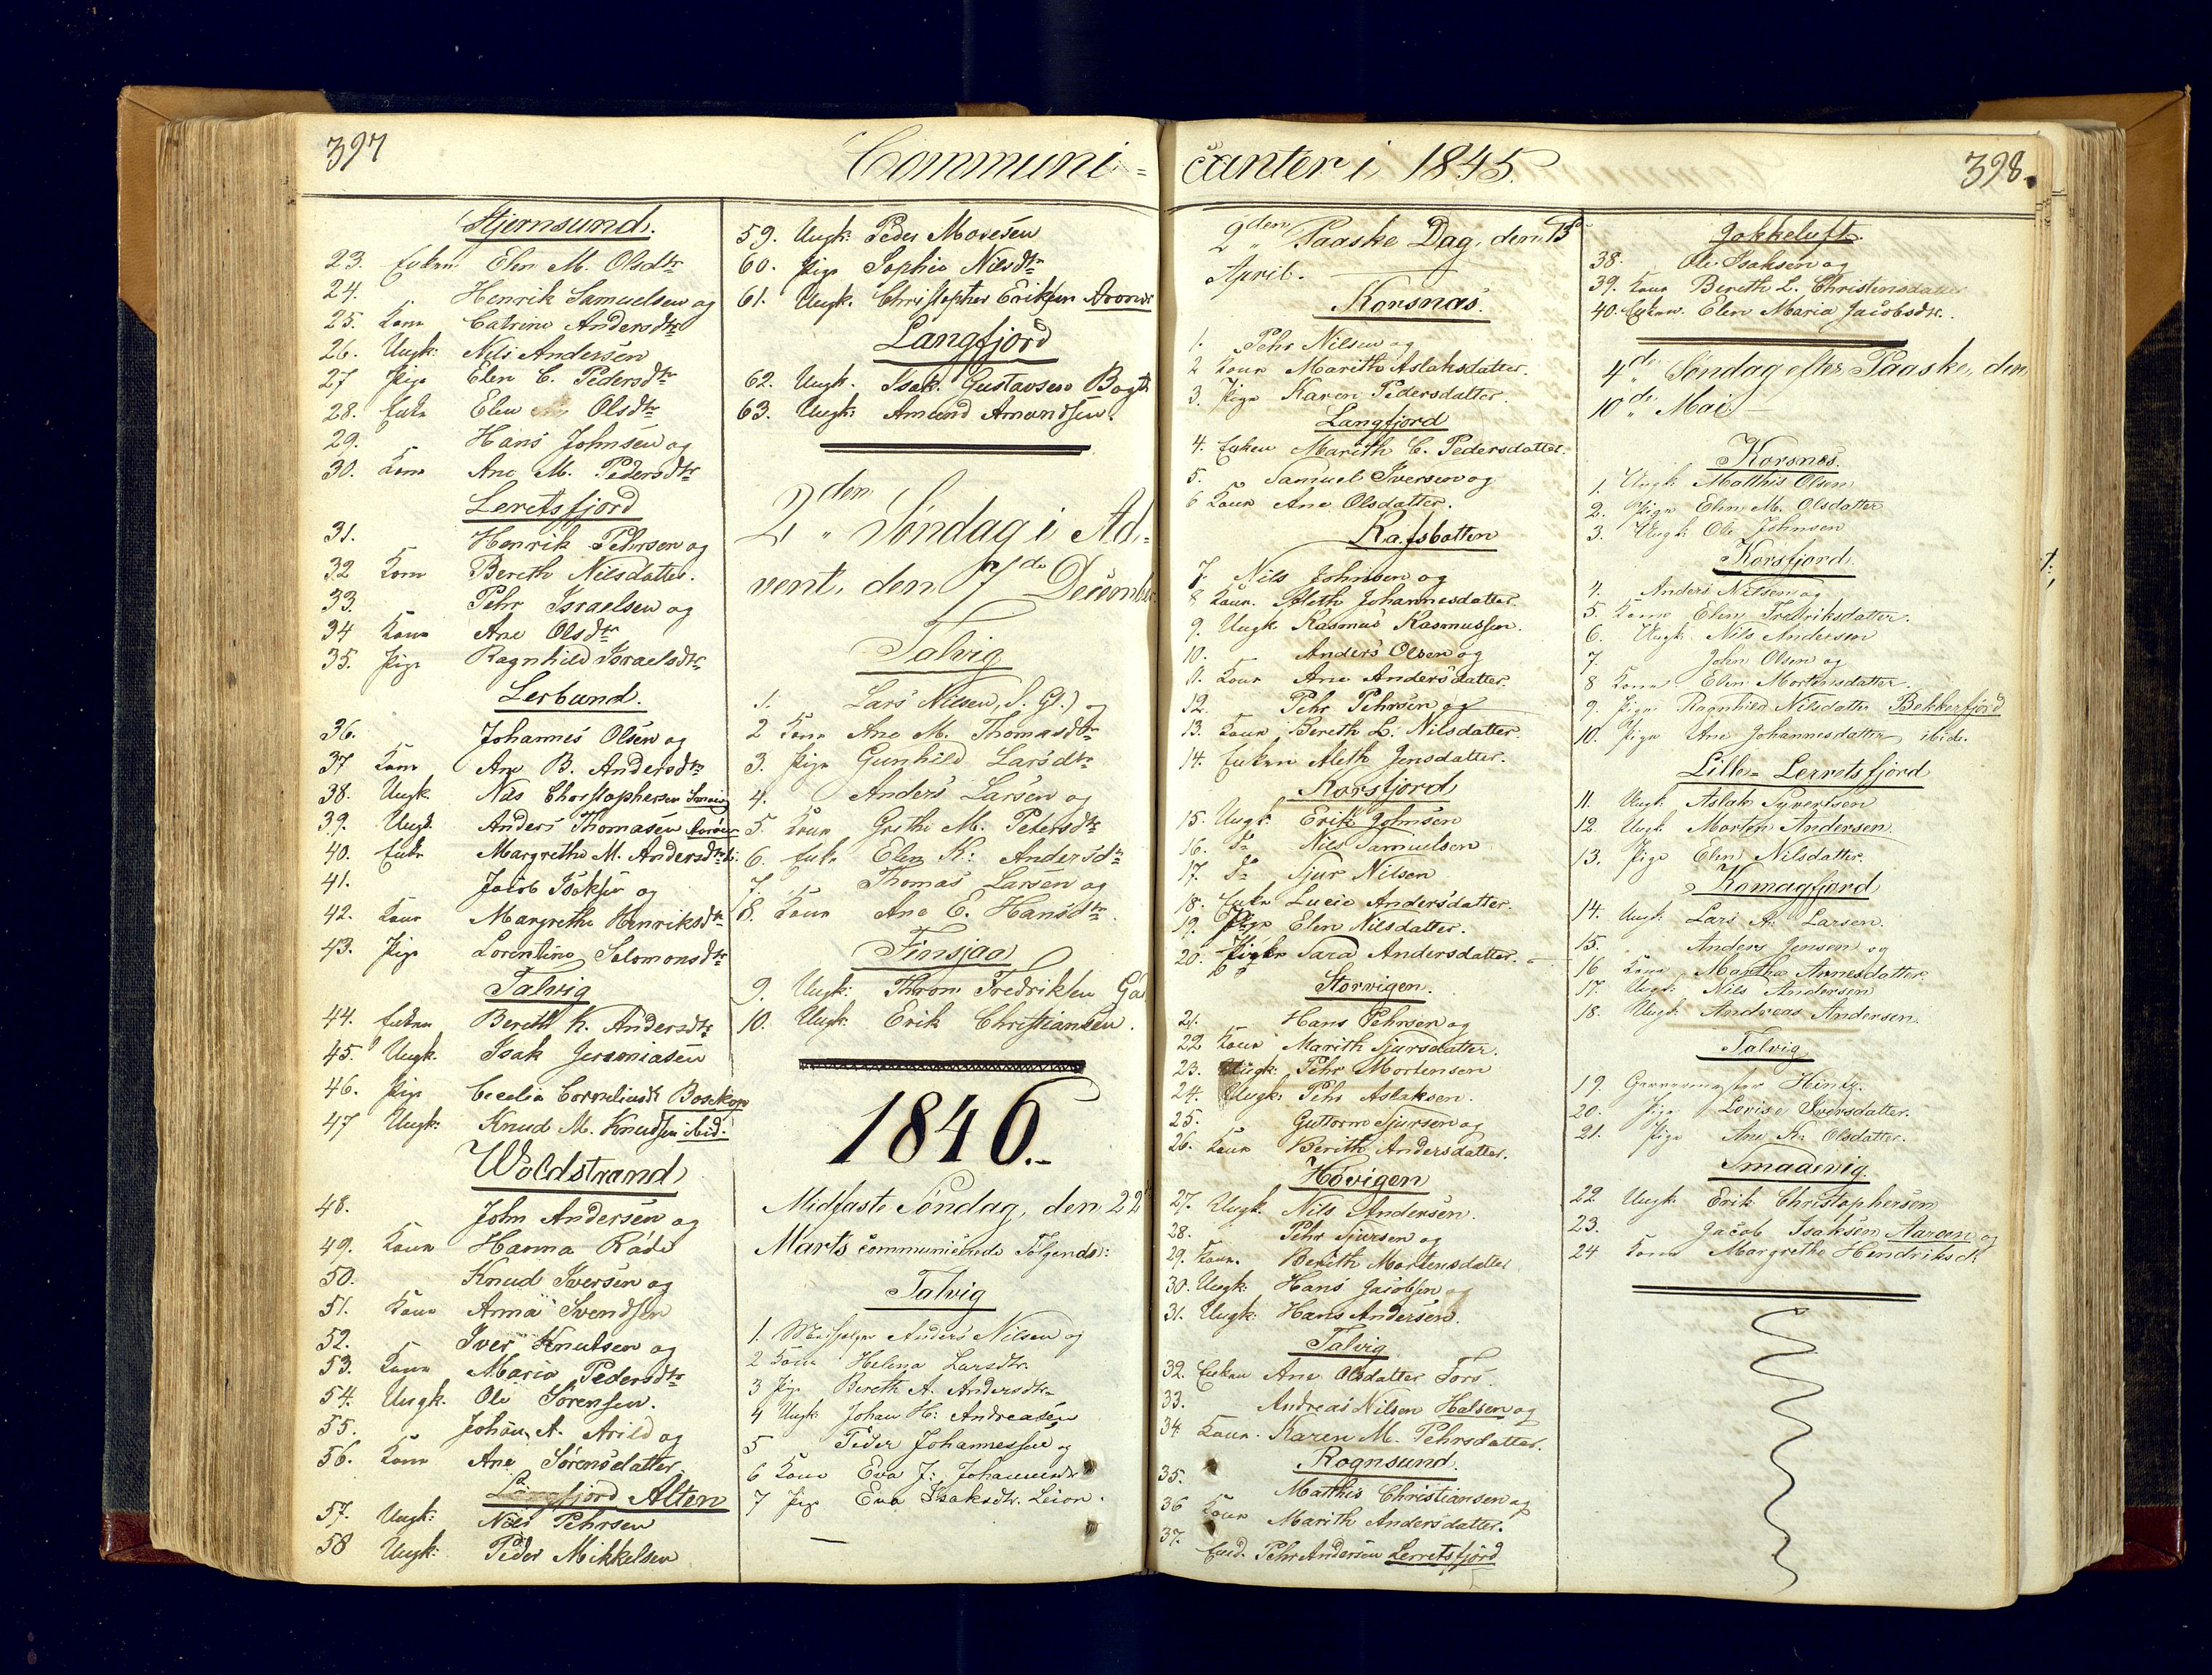 397
Communi-
Stjernsund.
23. Enken Elen M. Olsdtr
24. Henrik Samuelsen og
25. Kone Catrine Andersdtr
26. Ungk: Nils Andersen
27 Pige Elen C. Pedersdtr
28. Enke Elen Olsdtr
29. Hans Johnsen og
30. Kone Ane M. Pedersdtr
Leretsfjord
31. Henrik Pehrsen og
32 Kone Bereth Nilsdatter.
33. Pehr Israelsen og
34 Kone Ane Olsdtr
35. Pige Ragnhild Israelsdtr
Lerbund.
36. Johannes Olsen og
37 Kone Ane B. Andersdtr
38. Ungk. Nils Christophersen
39. Ungk. Anders Thomasen
40. Enke Margrethe M. Andersdtr
41. Jacob Isaksen og
42. Kone Margrethe Henriksdtr
43. Pige Lorentine Salomonsdtr
Talvig
44. Enken Bereth K. Andersdtr
45. Ungk. Isak Jeremiasen
46. Pige Cecelia Corneliusdt Bosekop
47 Ungk: Knud M. Knudsen ibid.
Woldstrand
48. John Andersen og
49. Kone Hanna Råde
50. Knud Iversen og
51. Kone Anna Svendsen
52. Iver Knutsen og
53. Kone Maria Pedersdtr
54. Ungk. Ole Sørensen.
55. Johan A. Arild og
56. Kone Ane Sørensdatter
Langfjord Alten
57. Ungk: Nils Pehrsen
58 Ungk: Peder Mikkelsen
59. Ungk: Peder Mosesen
60. Pige Sophie Nilsdtr
61. Ungk. Christopher Eriksen
Langfjord
62. Ungk. Isak Gustavsen Bogt
63. Ungk: Amund Amundsen.
2den Søndag i Ad-
vent, den 7de December
Talvig
1. Lars Nilsen, S. Gl.) og
2 Kone Ane M. Thomasdtr
3. Pige Gunhild Larsdtr
4. Anders Larsen og
5. Kone Grethe M. Petersdtr
6. Enke Elen K: Andersdtr
7. Thomas Larsen og
8. Kone Ane E. Hansdtr.
Finsjaa
9. Ungk: Thron Fredriksen
10. Ungk: Erik Christiansen.
1846.-
Midfaste Søndag, den 22
Marts communicerede Følgende:
Talvig
1. Medhjelper Anders Nilsen og
2 Kone Helena Larsdtr.
3 Pige Bereth A. Andersdtr
4 Ungk: Johan H: Andreasen
5 Peder Johannessen og
6 Kone Eva J: Johannesdtr
7 Pige Eva Isaksdtr. Leion.
canter i 1845.
398.
2den Paaske Dag, den 13de
April.
Korsnæs.
1. Pehr Nilsen og
2 Kone Marith Aslaksdatter.
3. Pige Karen Pedersdatter.
Langfjord
4. Enken Marith C. Pedersdatter.
5. Samuel Iversen og
6 Kone Ane Olsdatter.
Rafsbotten
7. Nils Johnsen og
8 Kone. Aleth Johannesdatter.
9. Ungk. Rasmus Rasmussen.
10. Anders Olsen og
11. Kone Ane Andersdatter.
12. Pehr Pehrsen og
13. Kone Bereth L: Nilsdatter.
14. Enken Aleth Jensdatter.
Korsfjord
15. Ungk: Erik Johnsen
16. Do Nils Samuelsen
17. Do Sjur Nilsen
18. Enke Lucie Andersdatter.
19. Pige Elen Nilsdatter.
20. Sara Andersdatter.
Storvigen.
21. Hans Pehrsen og
22 Kone Marith Sjursdatter.
23. Ungk: Pehr Mortensen
24. Ungk: Pehr Aslaksen.
25. Guttorm Sjursen og
26. Kone Berith Andersdatter.
Hovigen
27. Ungk. Nils Andersen.
28. Pehr Sjursen og
29. Kone. Berith Mortensdatter
30. Ungk: Hans Jacobsen og
31. Ungk: Hans Andersen.
Talvig
32. Enken Ane Olsdatter Fors.
33. Andreas Nilsen Halsen og
34 Kone. Karen M. Pehrsdatter.
Rognsund.
35. Matthis Christiansen og
36 Kone Marith Andersdatter.
37. Pehr Andersen Lerretsfjord
Jokkeluft.
38. Ole Isaksen og
39. Kone Bereth L. Christensdatter
40. Enken. Elen Maria Jacobsdtr.
4de Søndag efter Paaske, den
10de Mai.
Korsnes.
1. Ungk: Matthis Olsen
2. Pige Elen M. Olsdatter
3. Ungk: Ole Johnsen
Korsfjord
4. Anders Nilsen og
5. Kone Elen Fredriksdatter.
6. Ungk. Nils Andersen
7. John Olsen og
8 Kone Elen Mortensdatter.
9. Pige Ragnhild Nilsdatter Bekkerfjord
10. Pige Ane Johannesdatter ibid.
Lille-Lerretsfjord
11. Ungk: Aslak Syvertsen
12. Ungk. Morten Andersen.
13. Pige Elen Nilsdatter.
Komagfjord
14. Ungk: Lars A: Larsen.
15. Anders Jensen og
16 Kone Marthe Annesdatter
17. Ungk: Nils Andersen
18. Ungk: Andreas Andersen.
Talvig
19. Garvermester Hintz.
20. Pige Lovise Iversdatter.
21. Pige Ane K: Olsdatter.
Smaaevig.
22 Ungk. Erik Christophersen
23. Jacob Isaksen Aarøen og
24 Kone Margrethe Hendriksdtr